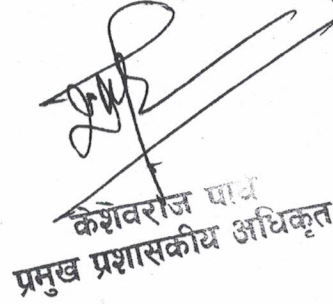 केशवराज
प्रमुख प्रशासकीय अधिकृत